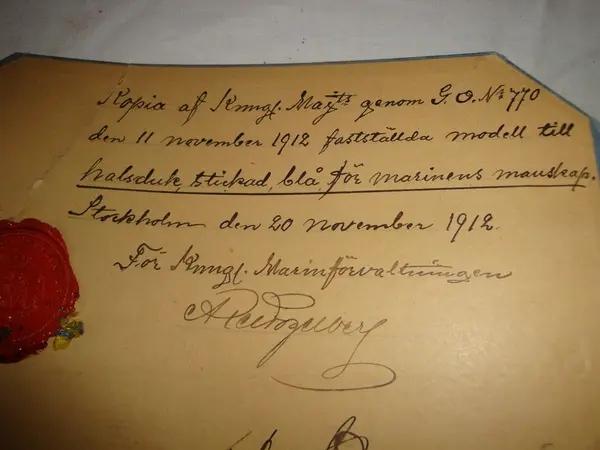 Kopia af Kunngl. Maj:ts genom G.O. No 770
den 11 november 1912 fastställda modell till
halsduk, stickad, blå, för marinens manskap.
Stockholm den 20 november 1912.
För Kunngl. Marinförvaltningen